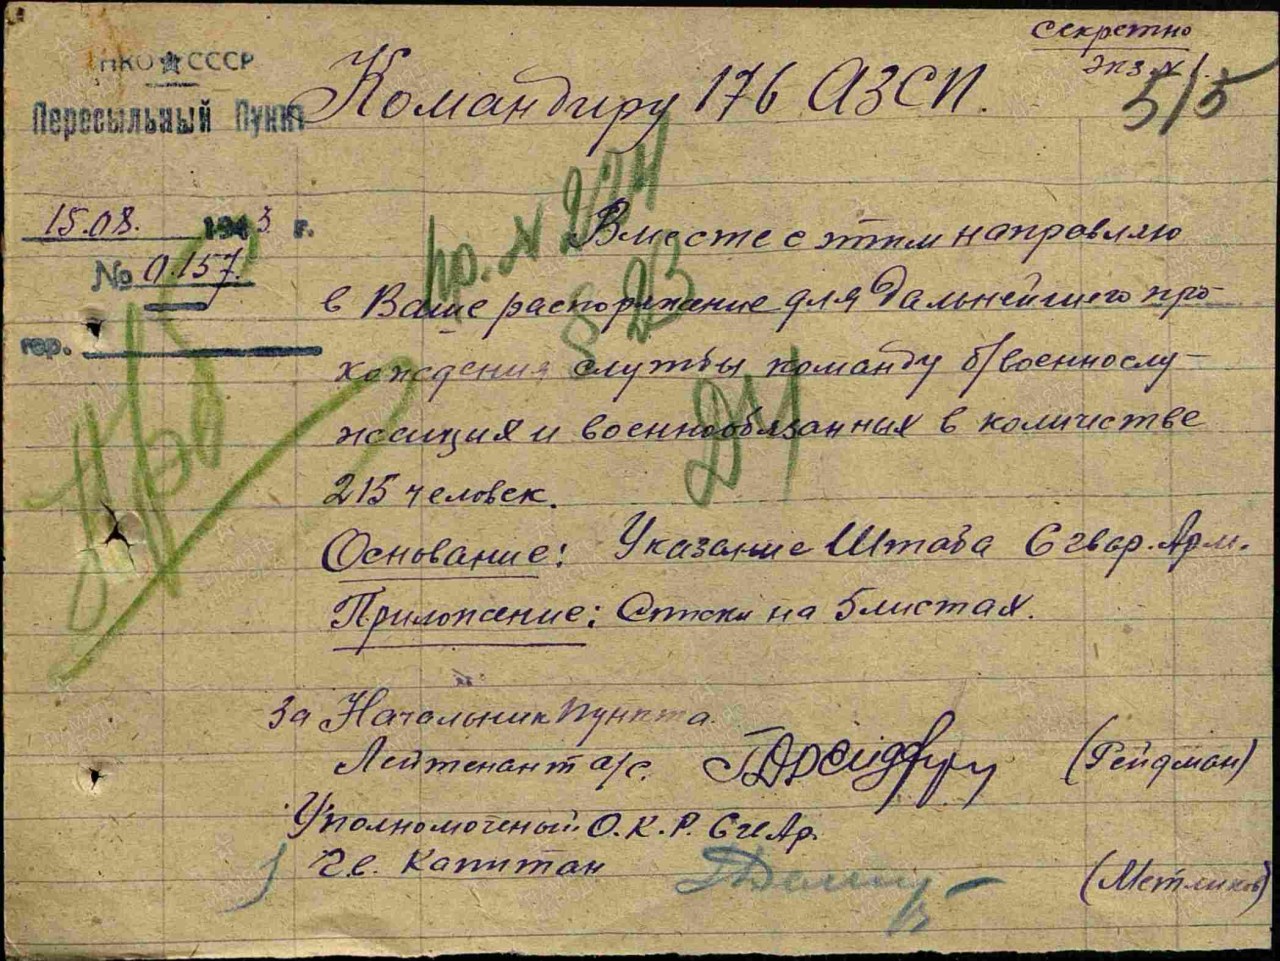 Секретно
Экз. N 1.
5/5
НКО СССР
Пересыльный Пункт
Командиру 176 АЗСП.
15.08. 1943 г.
№ 0.157.
гор.
пр. N
Вместе с этим направляю
в Ваше распоряжение для дальнейшего про-
хождения службы команду б/военнослу-
жащих и военнообязанных в количестве
215 человек.
Основание: Указание Штаба 6 гвар. Арм.
Приложение: Списки на 5 листах.
За Начальник пункта
Лейтенант а/с. (Рейдман)
Уполномоченый О.К.Р. 6 гв Ар.
Гв. Капитан (Метликов)